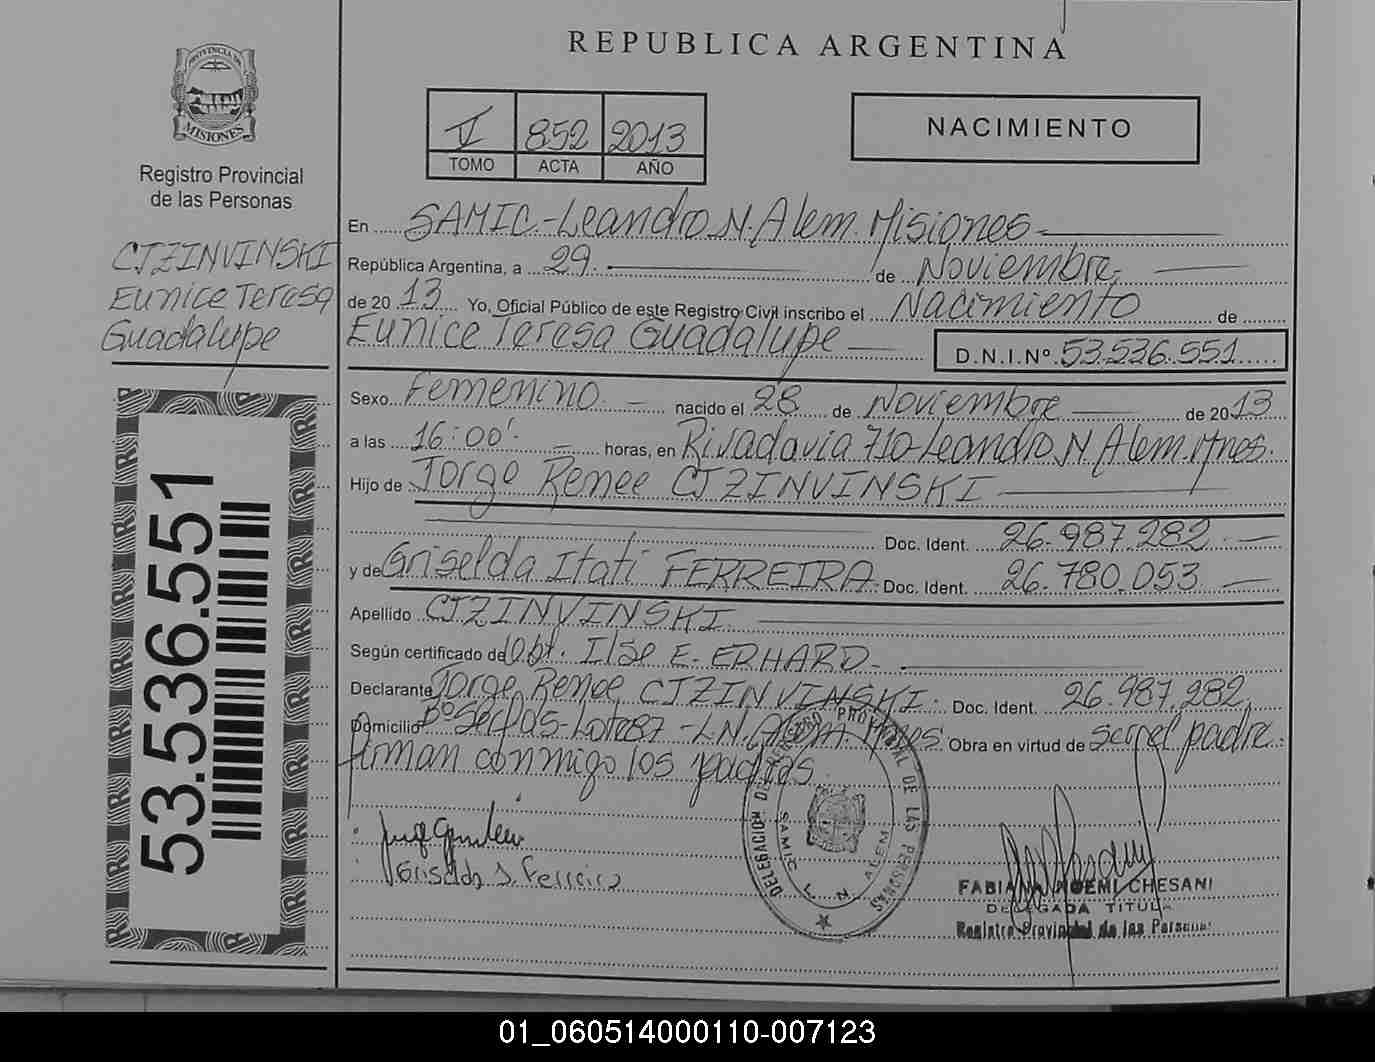 REPUBLICA ARGENTINA
PROVINCIA DE
MISIONES
Registro Provincial
de las Personas
I 852 2013
TOMO ACTA AÑO
NACIMIENTO
CJZINVINSKI
Eunice Teresa
Guadalupe
53.536.551
En SAMIC-Leandro N. Alem. Misiones
República Argentina, a 29 de Noviembre
de 2013 Yo, Oficial Público de este Registro Civil inscribo el Nacimiento de
Eunice Teresa Guadalupe D.N.I.Nº 53.536.551
Sexo Femenino nacido el 28 de Noviembre de 2013
a las 16:00 horas, en Rivadavia 710-Leandro N Alem. Mnes.
Hijo de Jorge Renee CJZINVINSKI
Doc. Ident. 26.987.282
y de Griselda Itati FERREIRA Doc. Ident. 26.780.053
Apellido CJZINVINSKI
Según certificado de Obt. Ilse E. ERHARD
Declarante Jorge Renee CJZINVINSKI. Doc. Ident. 26.987.282
Domicilio Lote 87 - L.N. Alem. Mnes Obra en virtud de ser el padre.
Firman conmigo los padres
Griselda I. Ferreira
DELEGACION DEL REGISTRO PROVINCIAL DE LAS PERSONAS
SAMIC L. N. ALEM
FABIANA NOEMI CHESANI
DELEGADA TITULAR
Registro Provincial de las Personas
01_060514000110-007123